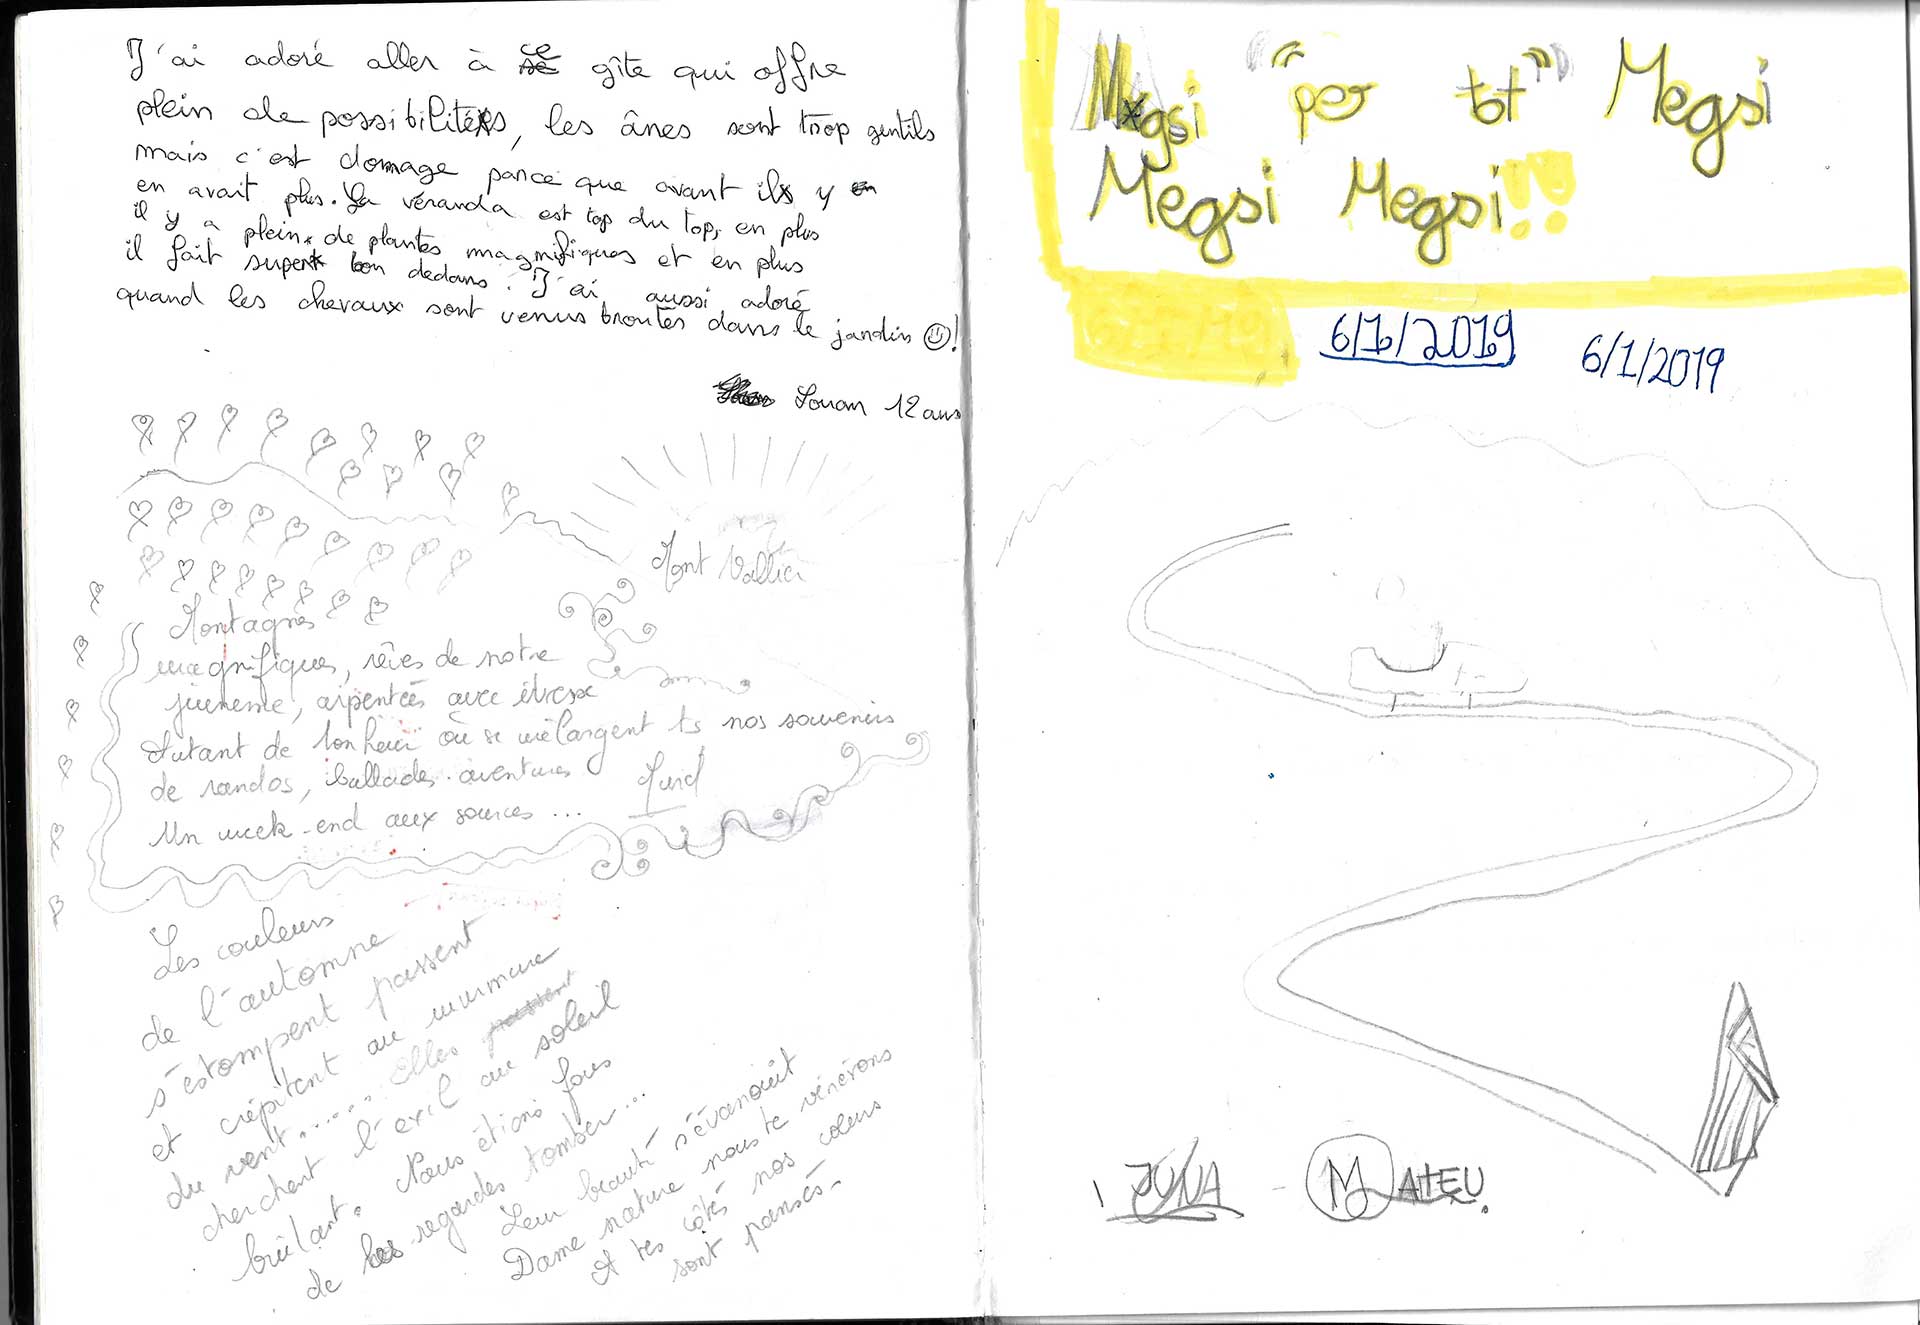 J'ai adoré aller à ce gîte qui offre
plein de possibilités, les ânes sont trop gentils
mais c'est domage parce que avant ils y
en avait plus. La véranda est top du top, en plus
il y a plein de plantes magnifiques et en plus
il fait super bon dedans. J'ai aussi adoré
quand les chevaux sont venus broutés dans le jardin !
Louan 12 ans
Mont Vallier
Montagnes
magnifiques, rêves de notre
jeunesse, arpentées avec
Autant de bonheur où se mélangent ts nos souvenirs
de randos, ballades. aventures
Un week-end aux sources ...
Les couleurs
de l'automne
s'estompent passent
et crépitent au murmure
du vent..... Elles
cherchent l'exil au soleil
brûlant. Nous étions fous
de les regardes tomber...
Leur beauté s'évanouit
Dame nature nous te vénérons
et tes côtés nos
sont pansés-
Megsi "per tot" Megsi
Megsi Megsi!!
6/1/2019 6/1/2019
JUNA - MATEU.